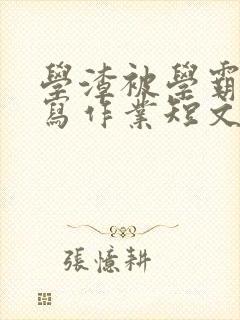 學渣被學霸
寫作業短文
張憶耕